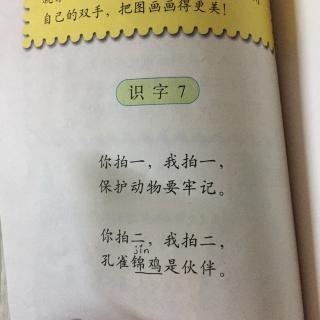 自己的双手，把图画画得更美！
识字7
你拍一，我拍一，
保护动物要牢记。
你拍二，我拍二，
jǐn
孔雀锦鸡是伙伴。